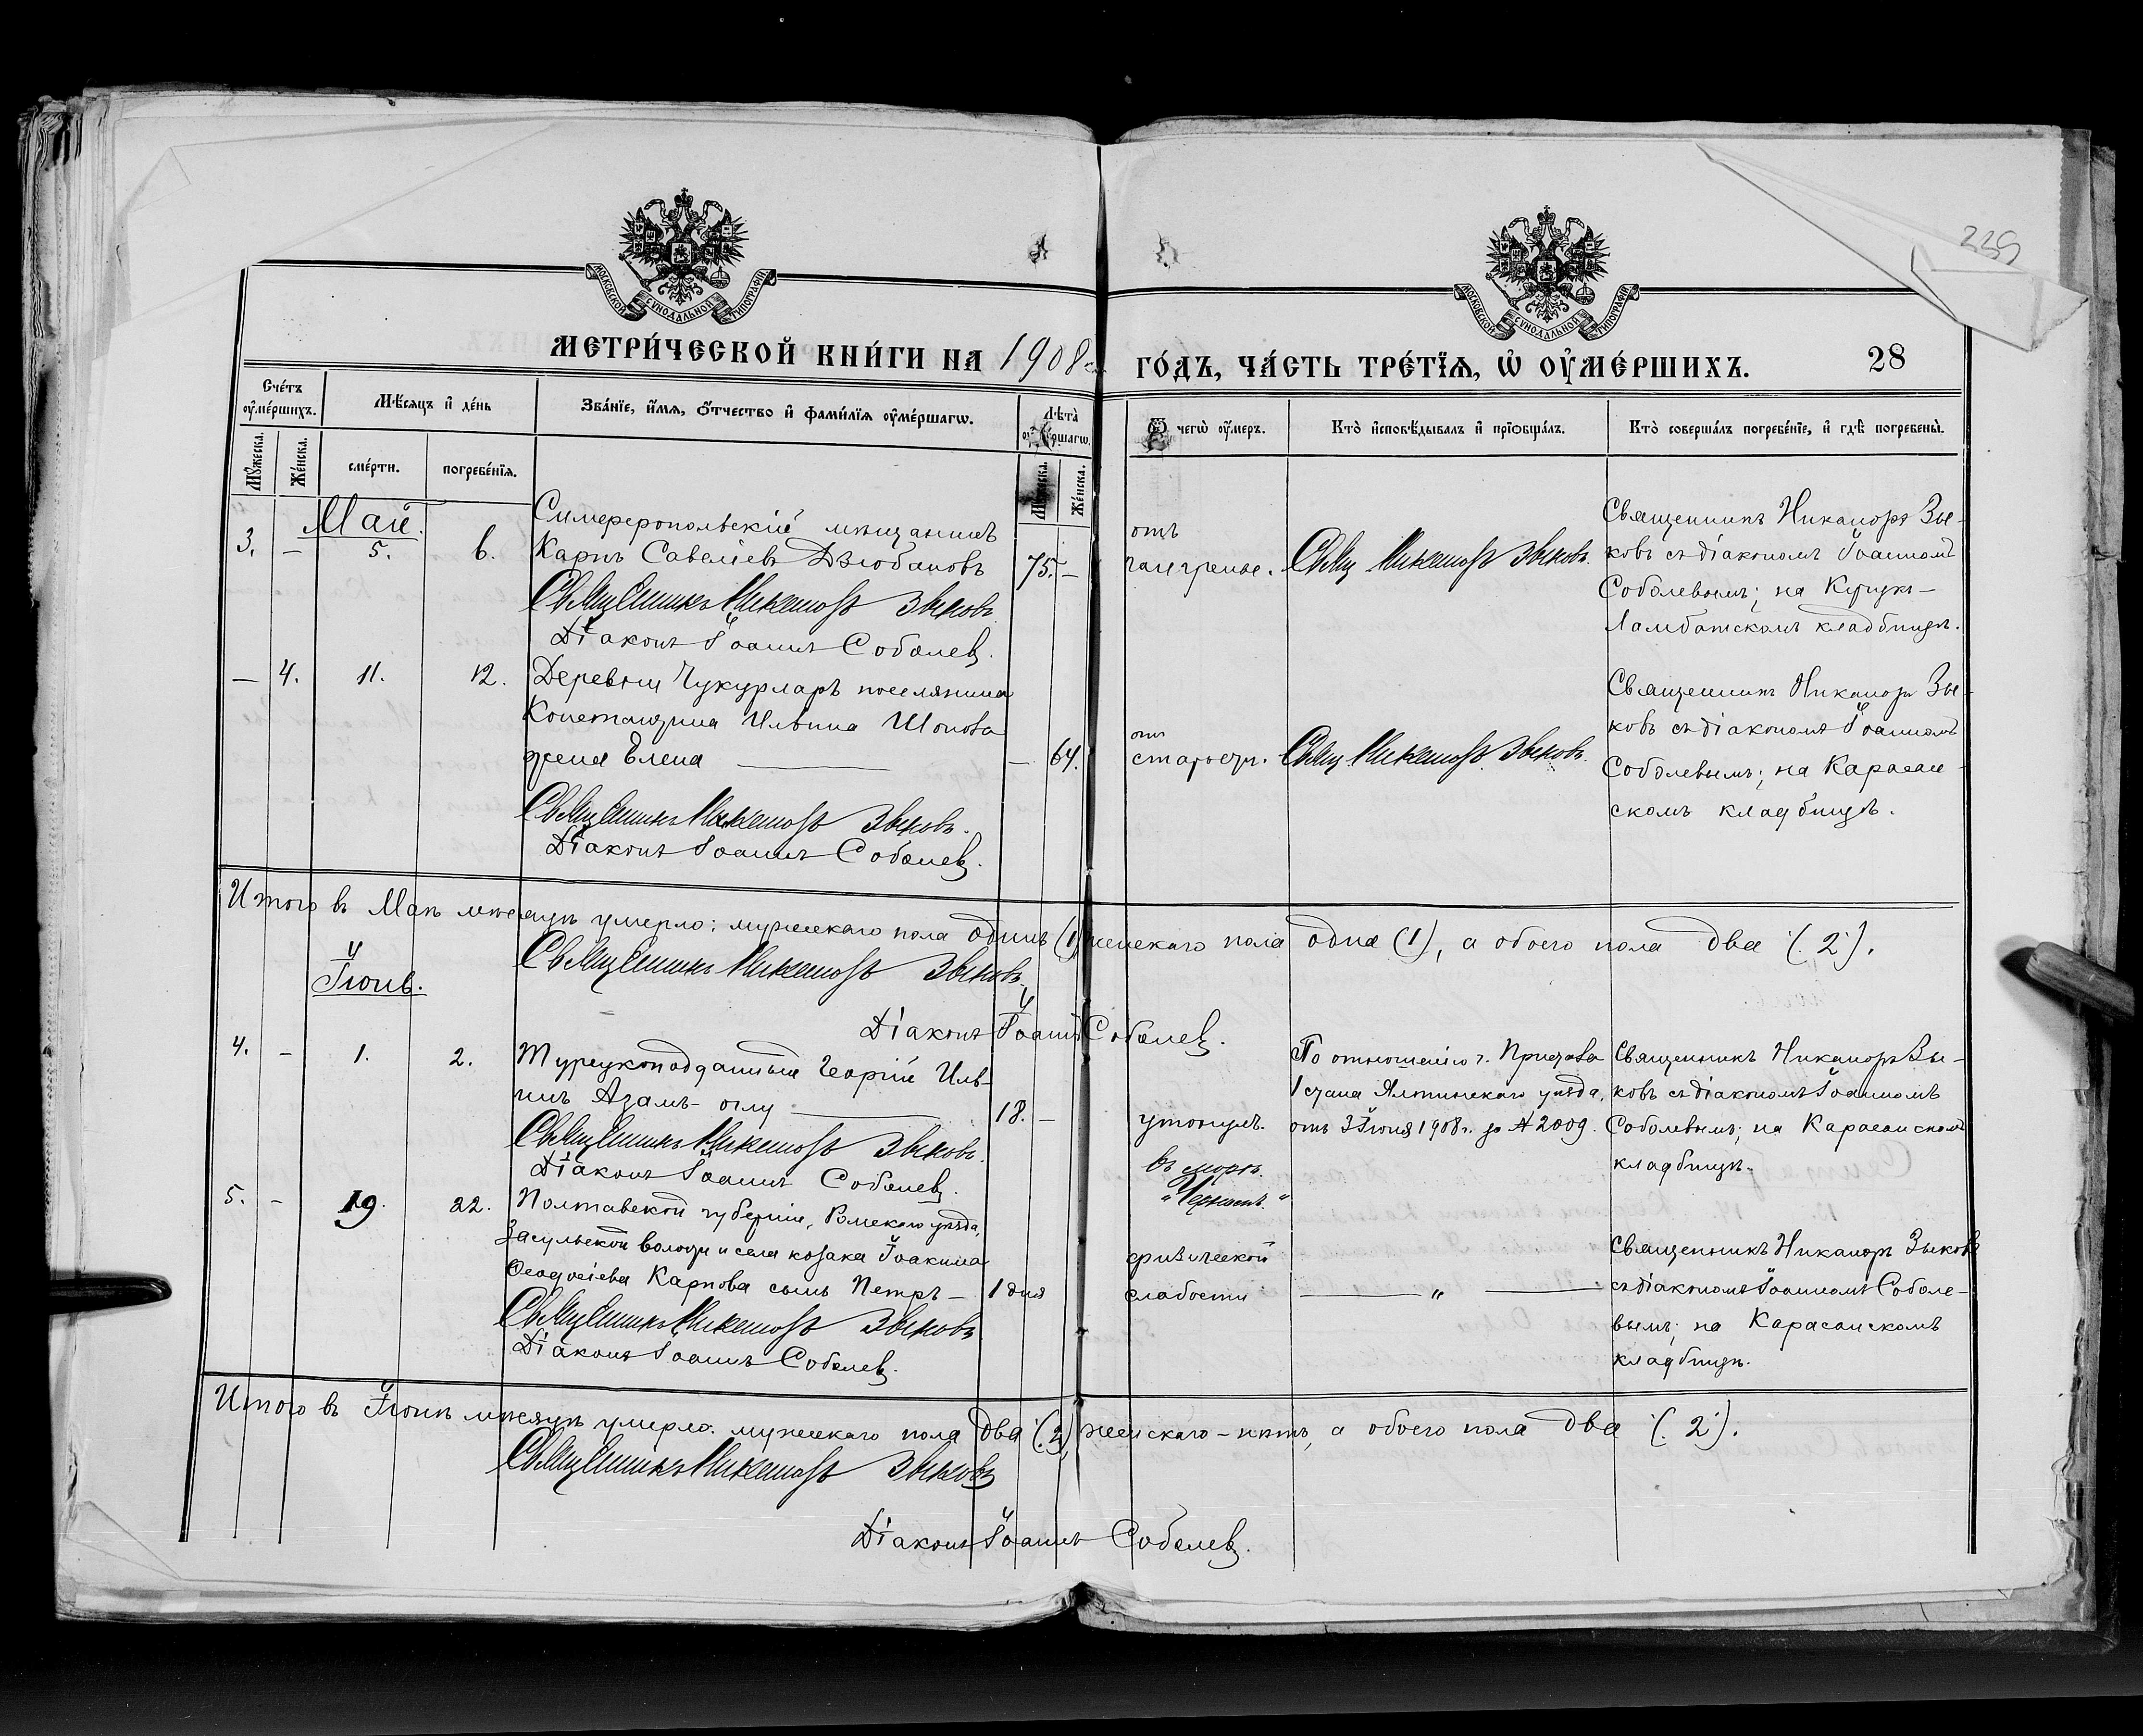 239
МОСКОВСКОЙ СѴНОДАЛЬНОЙ ТИПОГРАФІИ
МОСКОВСКОЙ СѴНОДАЛЬНОЙ ТИПОГРАФІИ
МЕТРИ́ЧЕСКОЙ КНИ́ГИ НА 1908 ГО́ДЪ, ЧА́СТЬ ТРЕ́ТЇѦ, Ѡ҆ ОУ҆МЕ́РШИХЪ. 28
Сче́тъ оу҆ме́ршихъ.
Мѣ́сѧцъ и҆ де́нь
Зва́нїе, и҆́мѧ, ѻ҆́тчество и҆ фами́лїѧ оу҆ме́ршагѡ.
Лѣта̀ оу҆ме́ршагѡ.
Ѿ чегѡ̀ оу҆́меръ.
Кто̀ и҆сповѣ́дывалъ и҆ прїѡбща́лъ.
Кто̀ соверша́лъ погребе́нїе, и҆ гдѣ̀ погребены̀.
Мꙋ́жеска. Же́нска. сме́рти. погребе́нїѧ. Мꙋ́жеска. Же́нска.
Май.
3. – 5. 6.
Симферопольскій мѣщанинъ
Карпъ Савеліевъ Дзюбановъ 75. –
Священникъ Никаноръ Зыковъ.
Діаконъ Іоаннъ Соболевъ.
отъ
гангрены.
Свящ Никаноръ Зыковъ.
Священникъ Никаноръ Зы-
ковъ съ діакономъ Іоанномъ
Соболевымъ; на Кучукъ-
Ламбатскомъ кладбищѣ.
– 4. 11. 12.
Деревни Чукурларъ поселянина
Константина Ильина Шопова
жена Елена – 64.
Священникъ Никаноръ Зыковъ.
Діаконъ Іоаннъ Соболевъ.
отъ
старости.
Свящ Никаноръ Зыковъ.
Священникъ Никаноръ Зы-
ковъ съ діакономъ Іоанномъ
Соболевымъ; на Карасан-
скомъ кладбищѣ.
Итого въ Маѣ мѣсяцѣ умерло: мужескаго пола одинъ (1) женскаго пола одна (1), а обоего пола два (2).
Священникъ Никаноръ Зыковъ.
Діаконъ Іоаннъ Соболевъ.
Іюнь.
4. – 1. 2.
Турецкоподданный Георгій Иль-
инъ Азамъ-оглу 18. –
Священникъ Никаноръ Зыковъ.
Діаконъ Іоаннъ Соболевъ.
утонулъ.
въ морѣ.
"Черномъ."
По отношенію г. Пристава
1 стана Ялтинскаго уѣзда,
отъ 3 Іюня 1908 г. за № 2009.
Священникъ Никаноръ Зы-
ковъ съ діакономъ Іоанномъ
Соболевымъ; на Карасанскомъ
кладбищѣ.
5. – 19. 22.
Полтавской губерніи, Роменскаго уѣзда,
Засульской волости и села козака Іоакима
Ѳеодосіева Карпова сынъ Петръ – 1 дня
Священникъ Никаноръ Зыковъ
Діаконъ Іоаннъ Соболевъ.
физической
слабости
— " —
Священникъ Никаноръ Зыковъ
съ діакономъ Іоанномъ Соболе-
вымъ; на Карасанскомъ
кладбищѣ.
Итого въ Іюнѣ мѣсяцѣ умерло: мужескаго пола два (2) женскаго – нѣтъ, а обоего пола два (2).
Священникъ Никаноръ Зыковъ
Діаконъ Іоаннъ Соболевъ.